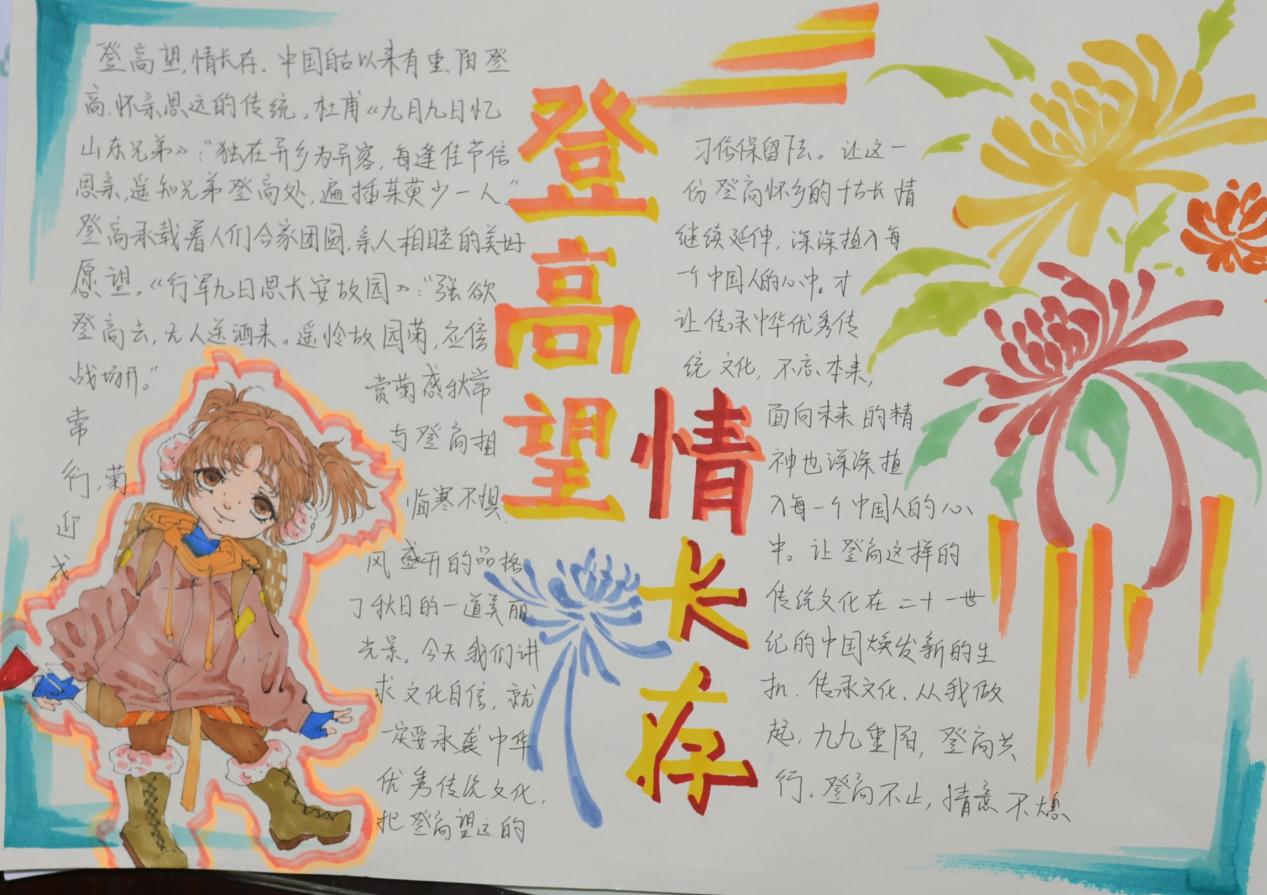 登高望,情长存.中国自古以来有重阳登
高.怀亲思远的传统。杜甫《九月九日忆
山东兄弟》:"独在异乡为异客,每逢佳节倍
思亲,遥知兄弟登高处,遍插茱萸少一人。"
登高承载着人们合家团圆,亲人相睦的美好
愿望。《行军九日思长安故园》:"强欲
登高去,无人送酒来。遥怜故园菊,应傍
战场开。"
赏菊感秋常
常
与登高相
行,菊
临寒不惧.
迎
风盛开的品格
成
了秋日的一道美丽
光景。今天我们讲
求文化自信,就
一定要承袭中华
优秀传统文化,
把登高望远的
登
高
望
情
长
存
习俗保留下去。让这一
份登高怀乡的古长情
继续延伸,深深植入每
一个中国人的心中。才
让传承中华优秀传
统文化,不忘本来,
面向未来的精
神也深深植
入每一个中国人的心
中。让登高这样的
传统文化在二十一世
纪的中国焕发新的生
机.传承文化、从我做
起,九九重阳,登高共
行。登高不止,情意不熄